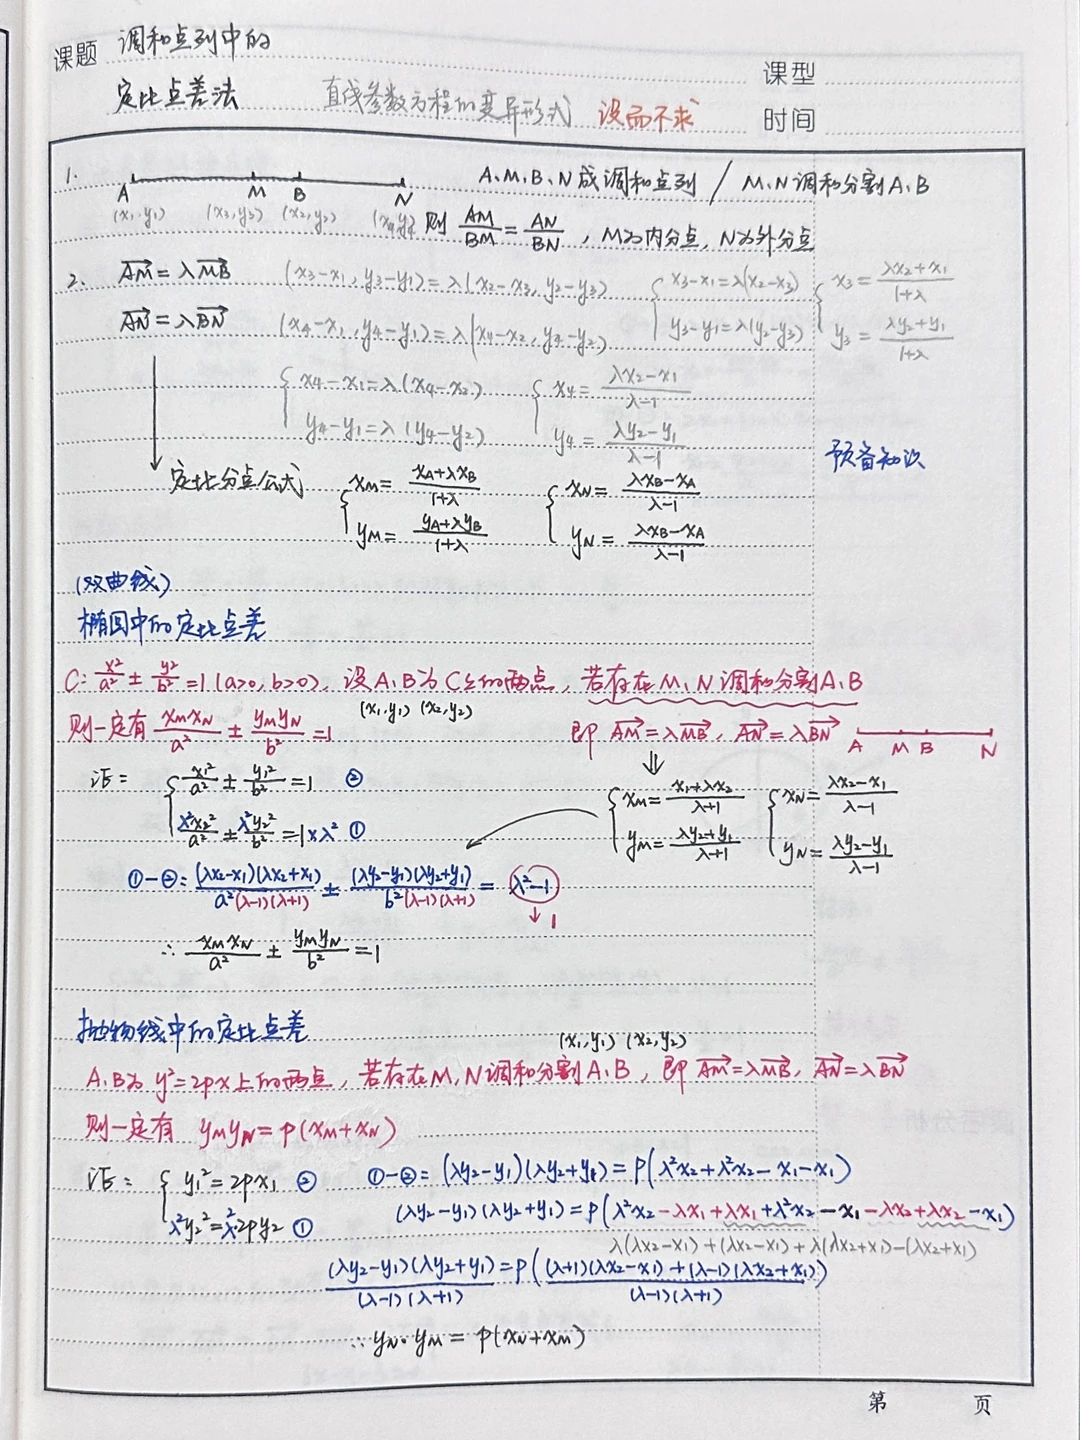 课题 调和点列中的
定比点差法 直线参数方程的变异形式 设而不求
课型
时间
1. A M B N A、M、B、N成调和点列 / M、N调和分割A、B
(x₁,y₁) (x₃,y₃) (x₂,y₂) (x₄,y₄) 则 AM/BM = AN/BN , M为内分点, N为外分点
2. →AM = λ→MB (x₃-x₁, y₃-y₁) = λ(x₂-x₃, y₂-y₃) { x₃-x₁=λ(x₂-x₃) y₃-y₁=λ(y₂-y₃) { x₃ = (λx₂+x₁)/(1+λ) y₃ = (λy₂+y₁)/(1+λ)
→AN = λ→BN (x₄-x₁, y₄-y₁) = λ(x₄-x₂, y₄-y₂)
{ x₄-x₁=λ(x₄-x₂) y₄-y₁=λ(y₄-y₂) { x₄ = (λx₂-x₁)/(λ-1) y₄ = (λy₂-y₁)/(λ-1)
预备知识
定比分点公式 { x_M = (x_A+λx_B)/(1+λ) y_M = (y_A+λy_B)/(1+λ) { x_N = (λx_B-x_A)/(λ-1) y_N = (λx_B-x_A)/(λ-1)
(双曲线)
椭圆中的定比点差
C: x²/a² ± y²/b² = 1 (a>0, b>0), 设A、B为C上的两点, 若存在M、N调和分割A、B
(x₁,y₁) (x₂,y₂)
则一定有 x_Mx_N/a² ± y_My_N/b² = 1 即 →AM = λ→MB, →AN = λ→BN A M B N
证: { x₁²/a² ± y₁²/b² = 1 ② λ²x₂²/a² ± λ²y₂²/b² = 1×λ² ①
⇓ { x_M = (x₁+λx₂)/(λ+1) y_M = (λy₂+y₁)/(λ+1) { x_N = (λx₂-x₁)/(λ-1) y_N = (λy₂-y₁)/(λ-1)
①-②: (λx₂-x₁)(λx₂+x₁)/a²(λ-1)(λ+1) ± (λy₂-y₁)(λy₂+y₁)/b²(λ-1)(λ+1) = λ²-1
↓ 1
∴ x_Mx_N/a² ± y_My_N/b² = 1
抛物线中的定比点差
(x₁,y₁) (x₂,y₂)
A、B为y²=2px上的两点, 若存在M、N调和分割A、B, 即 →AM = λ→MB, →AN = λ→BN
则一定有 y_My_N = p(x_M+x_N)
证: { y₁² = 2px₁ ② λ²y₂² = λ²·2py₂ ①
①-②= (λy₂-y₁)(λy₂+y₁) = p(λ²x₂+λ²x₂-x₁-x₁)
(λy₂-y₁)(λy₂+y₁) = p(λ²x₂-λx₁+λx₁+λ²x₂-x₁-λx₂+λx₂-x₁)
λ(λx₂-x₁)+(λx₂-x₁)+λ(λx₂+x₁)-(λx₂+x₁)
(λy₂-y₁)(λy₂+y₁)/(λ-1)(λ+1) = p((λ+1)(λx₂-x₁)+(λ-1)(λx₂+x₁))/(λ-1)(λ+1)
∴ y_N·y_M = p(x_N+x_M)
第 页